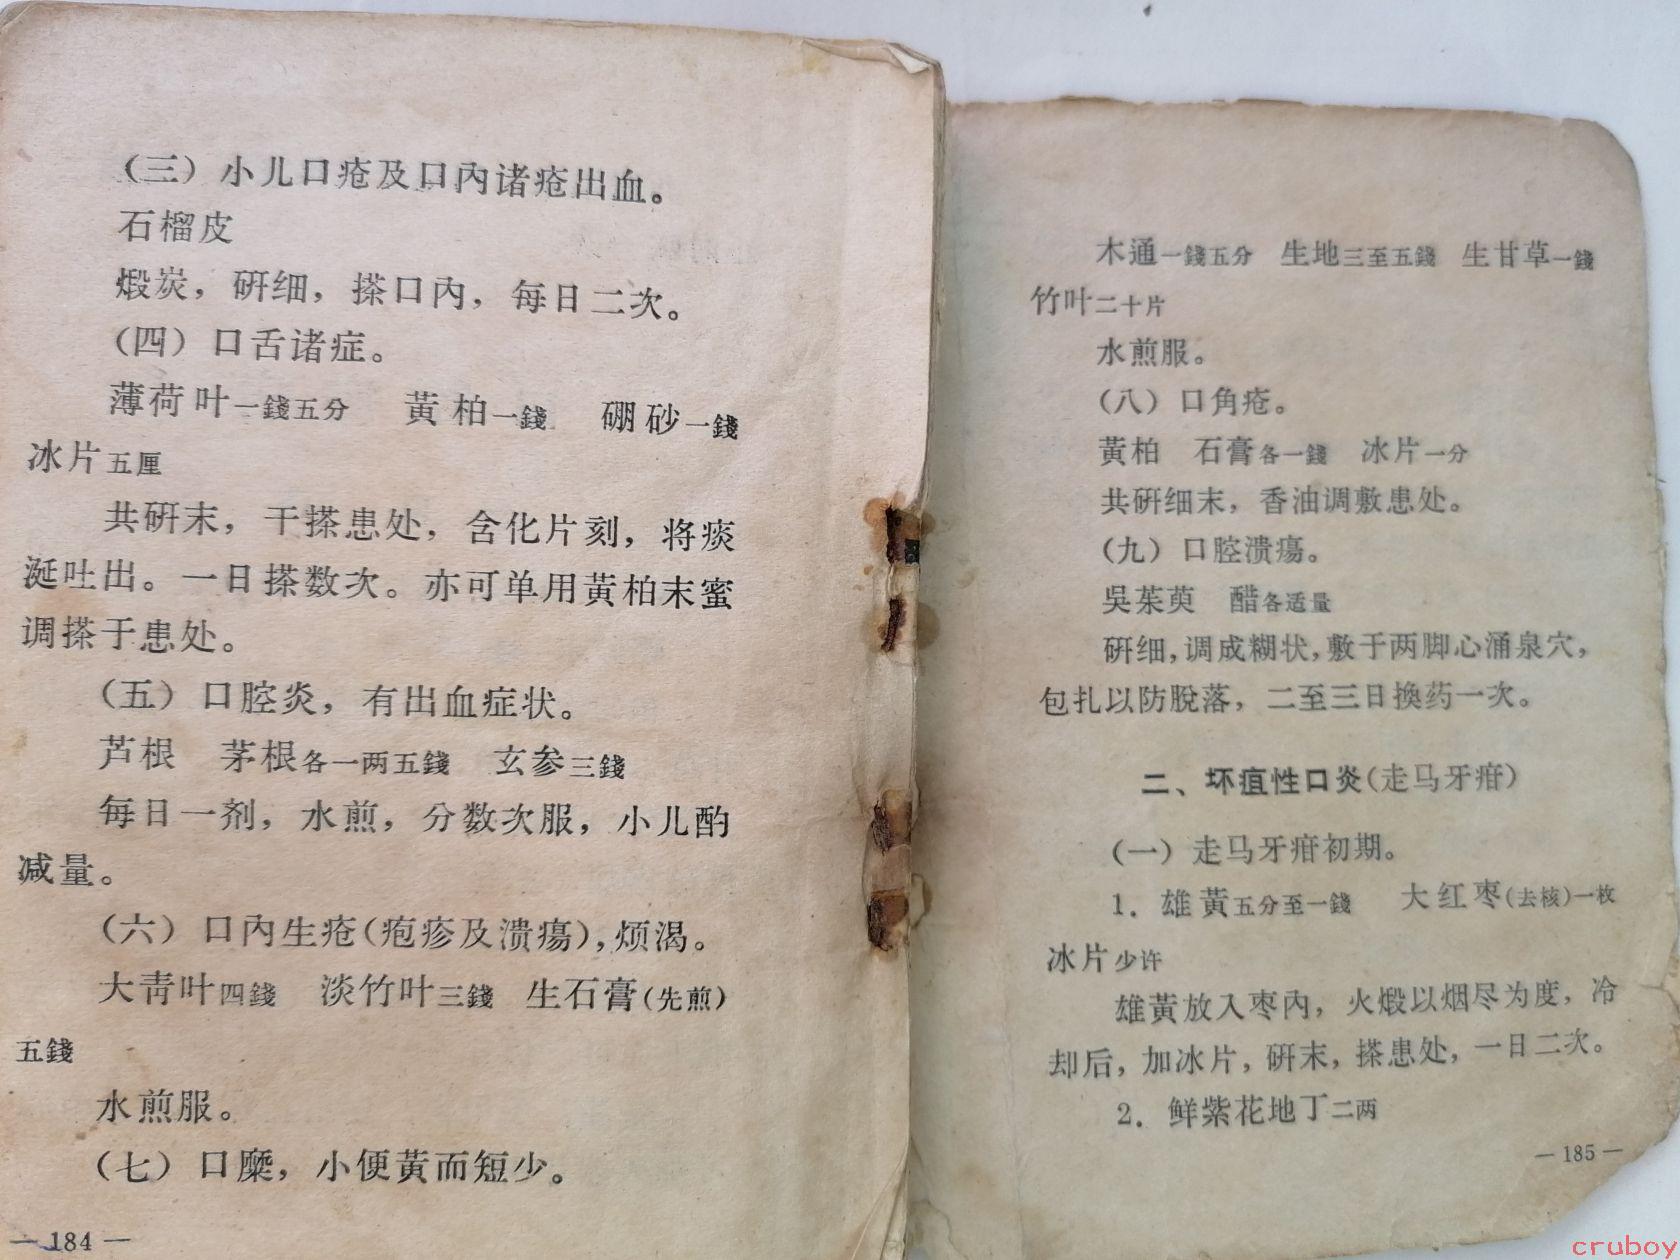 （三）小儿口疮及口內诸疮出血。
石榴皮
煅炭，研细，搽口內，每日二次。
（四）口舌诸症。
薄荷叶一錢五分　黄柏一錢　硼砂一錢
冰片五厘
共研末，干搽患处，含化片刻，将痰
涎吐出。一日搽数次。亦可单用黄柏末蜜
调搽于患处。
（五）口腔炎，有出血症状。
芦根　茅根各一两五錢　玄参三錢
每日一剂，水煎，分数次服，小儿酌
减量。
（六）口內生疮（疱疹及溃瘍），烦渴。
大靑叶四錢　淡竹叶三錢　生石膏（先煎）
五錢
水煎服。
（七）口糜，小便黄而短少。
— 184 —
木通一錢五分　生地三至五錢　生甘草一錢
竹叶二十片
水煎服。
（八）口角疮。
黄柏　石膏各一錢　冰片一分
共研细末，香油调敷患处。
（九）口腔溃瘍。
吳茱萸　醋各适量
研细，调成糊状，敷于两脚心涌泉穴，
包扎以防脫落，二至三日換药一次。
二、坏疽性口炎（走马牙疳）
（一）走马牙疳初期。
1．雄黄五分至一錢　大红枣（去核）一枚
冰片少许
雄黄放入枣內，火煅以烟尽为度，冷
却后，加冰片，研末，搽患处，一日二次。
2．鲜紫花地丁二两
— 185 —
cruboy